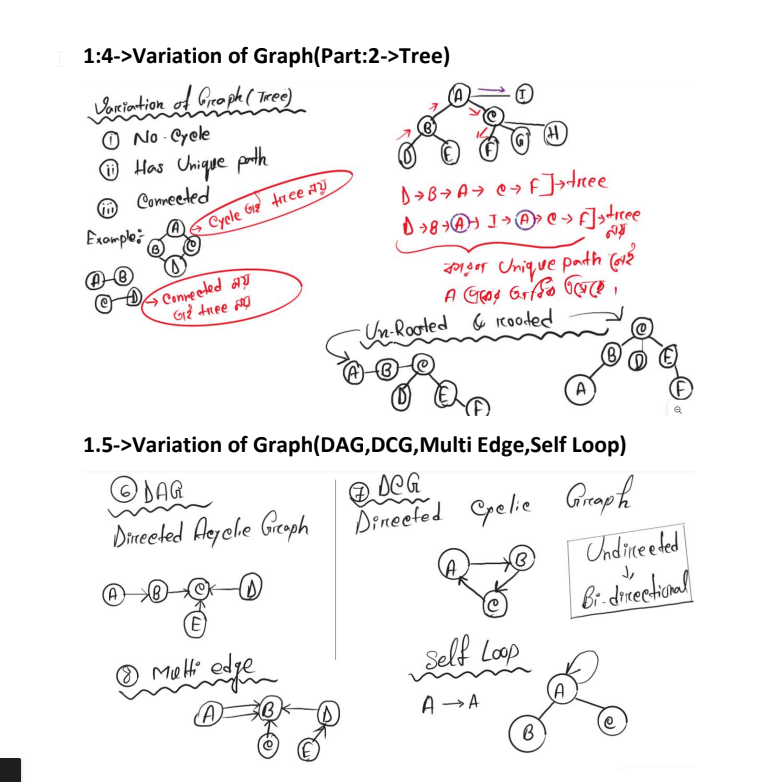 1:4->Variation of Graph(Part:2->Tree)
Variation of Graph (Tree)
(i) No-Cycle
(ii) Has Unique path
(iii) Connected
Example:
A
B
C
D
→ Cycle তাই tree নয়
A B
C D
→ Connected নয়
তাই tree নয়
A I
B C
D E F G H
D→B→A→C→F]→tree
D→B→A→I→A→C→F]→tree
নয়
কারণ Unique path নেই
A
Un-Rooted & rooted
A B C
D E
F
C
B D E
A F
1.5->Variation of Graph(DAG,DCG,Multi Edge,Self Loop)
⑥ DAG
Directed Acyclic Graph
A B C D
E
⑦ DCG
Directed Cyclic Graph
A B
C
Undirected
↓
Bi-directional
⑧ Multi edge
A B D
C E
Self Loop
A → A
A
B C